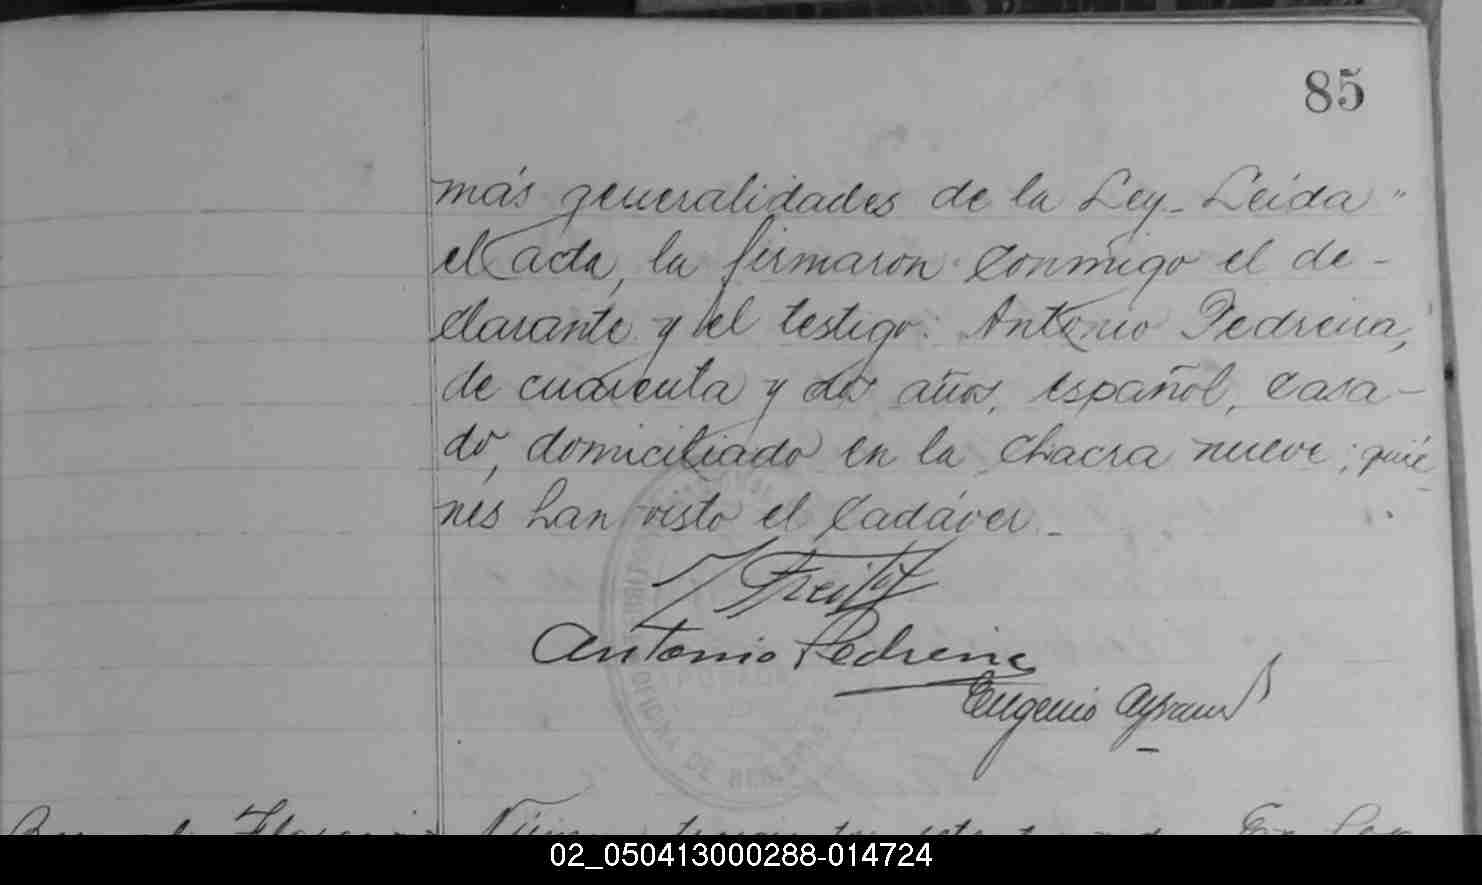 85
más generalidades de la Ley_ Leída "
el acta, la firmaron conmigo el de-
clarante y el testigo: Antonio Pedreira,
de cuarenta y dos años, español, casa-
do, domiciliado en la chacra nueve; quié
nes han visto el cadáver_
Antonio Pedreira
Eugenio
OFICINA DE
02_050413000288-014724